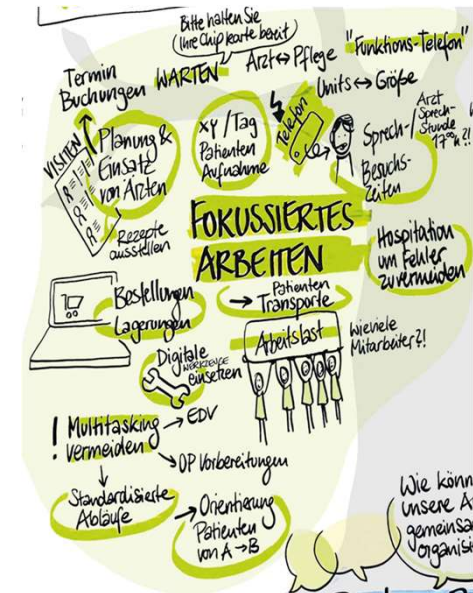 Bitte halten Sie
Ihre Chipkarte bereit
Termin
Buchungen
WARTEN
Arzt ↔ Pflege
"Funktions-Telefon"
Units ↔ Größe
VISITEN
Planung &
Einsatz
von Ärzten
Rezepte
ausstellen
XY / Tag
Patienten
Aufnahme
Telefon
Sprech-/
Besuchs-
Zeiten
Arzt
Sprech-
Stunde
17°°h ?!
FOKUSSIERTES
ARBEITEN
Hospitation
um Fehler
zu vermeiden
Bestellungen
Lagerungen
→ Patienten
Transporte
Arbeitslast
wieviele
Mitarbeiter?!
Digitale
WERKZEUGE
einsetzen
! Multitasking
vermeiden
→ EDV
→ OP Vorbereitungen
Standardisierte
Abläufe
→ Orientierung
Patienten
von A → B
Wie könn
unsere A
gemeinsa
organisi